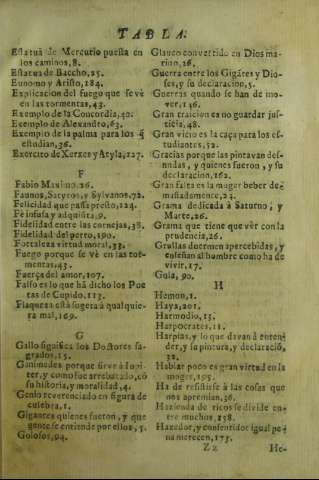 TABLA.
Estatua de Mercurio puesta en
los caminos, 8.
Estatua de Baccho, 25.
Eunomo y Aristo, 184.
Explicacion del fuego que se vè
en las tormentas, 43.
Exemplo de la Concordia, 40.
Exemplo de Alexandro, 63.
Exemplo de la palma para los q̃
estudian, 36.
Exercito de Xerxes y Atyla, 227.
F
Fabio Maximo. 26.
Faunos, Satyros, y Sylvanos, 72.
Felicidad que passa presto, 224.
Fè infusa y adquisita, 9.
Fidelidad entre las cornejas, 38.
Fidelidad del perro, 190.
Fortaleza virtud moral, 33.
Fuego porque se vè en las tor-
mentas, 43.
Fuerça del amor, 107.
Falso es lo que hà dicho los Poe
tas de Cupido, 113.
Flaqueza està sugeta à qualquie-
ra mal, 169.
G
Gallo significa los Doctores sa-
grados, 15.
Ganimedes porque sirve à Iupi-
ter, y como fue arrebatado, cò
su historia, y moralidad, 4.
Genio reverenciado en figura de
culebra, 1.
Gigantes quienes fueron, y que
gente se entiende por ellos, 5.
Golosos, 94.
Glauco convertido en Dios ma-
rino, 26.
Guerra entre los Gigantes y Dio-
ses, y su declaracion, 5.
Guerras quando se han de mo-
ver, 146.
Gran traicion es no guardar jus-
ticia, 48.
Gran vicio es la caça para los es-
tudiantes, 52.
Gracias porque las pintavan des-
nudas, y quienes fueron, y su
declaracion, 162.
Gran falta es la muger beber de-
masiadamente, 24.
Grama dedicada à Saturno, y
Marte, 26.
Grama que tiene que vèr con la
prudencia, 26.
Grullas duermen apercebidas, y
enseñan al hombre como ha de
vivir, 17.
Gula, 90.
H
Hemon, 1.
Haya, 201.
Harmodio, 13.
Harpocrates, 11.
Harpias, y lo que davan à enten-
der, y su pintura, y declaraciõ,
32.
Hablar poco es gran virtud en la
muger, 195.
Ha de resistirse à las cosas que
nos apremian, 36.
Hazienda de ricos se divide en-
tre muchos, 158.
Hazedor, y consentidor igual pe-
na merecen, 173.
Zz He-